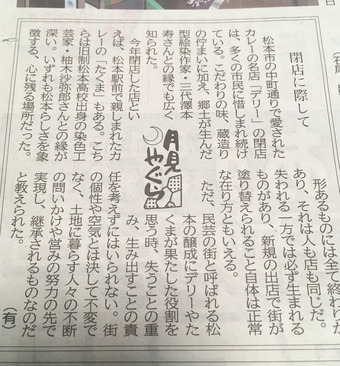 閉店に際して
松本市の中町通りで愛された
カレーの名店「デリー」の閉店
は、多くの市民に惜しまれ続け
ている。こだわりの味、蔵造り
の佇まいに加え、郷土が生んだ
型絵染作家・三代澤本
寿さんとの縁でも広く
知られた。
今年閉店した店とい
えば、松本駅前で親しまれたカ
レーの「たくま」もある。こち
らは旧制松本高校出身の染色工
芸家・柚木沙弥郎さんとの縁が
深い。いずれも松本らしさを象
徴する、心に残る場所だった。
月見やぐら
形あるものには全て終わりが
あり、それは人も店も同じだ。
失われる一方では必ず生まれる
ものがあり、新規の出店で街が
塗り替えられること自体は正常
な在り方ともいえる。
ただ、民芸の街と呼ばれる松
本の醸成にデリーやた
くまが果たした役割を
思う時、失うことの重
み、生み出すことの責
任を考えずにはいられない。街
の個性や空気とは決して不変で
なく、土地に暮らす人々の不断
の問いかけや営みの努力の先で
実現し、継承されるものなのだ
と教えられた。
(有)